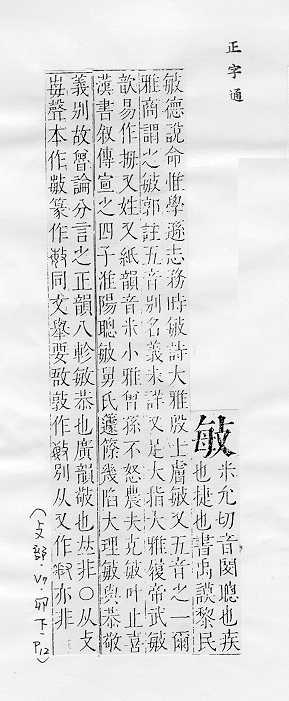 正字通
敏
米允切音閔聰也疾
也捷也書禹謨黎民
敏德說命惟學遜志務時敏詩大雅殷士膚敏又五音之一爾
雅商謂之敏郭註五音別名義未詳又足大指大雅履帝武敏
歆易作拇又姓又紙韻音米小雅曾孫不怒農夫克敏叶止喜
漢書叙傳宣之四子淮陽聰敏舅氏蘧篨幾陷大理敏與恭敬
義別故曾論分言之正韻八軫敏恭也廣韻敬也𠀤非○从攴
每聲本作敏篆作同文舉要敔敦作別从又作亦非
(攴部.卯下.P12)